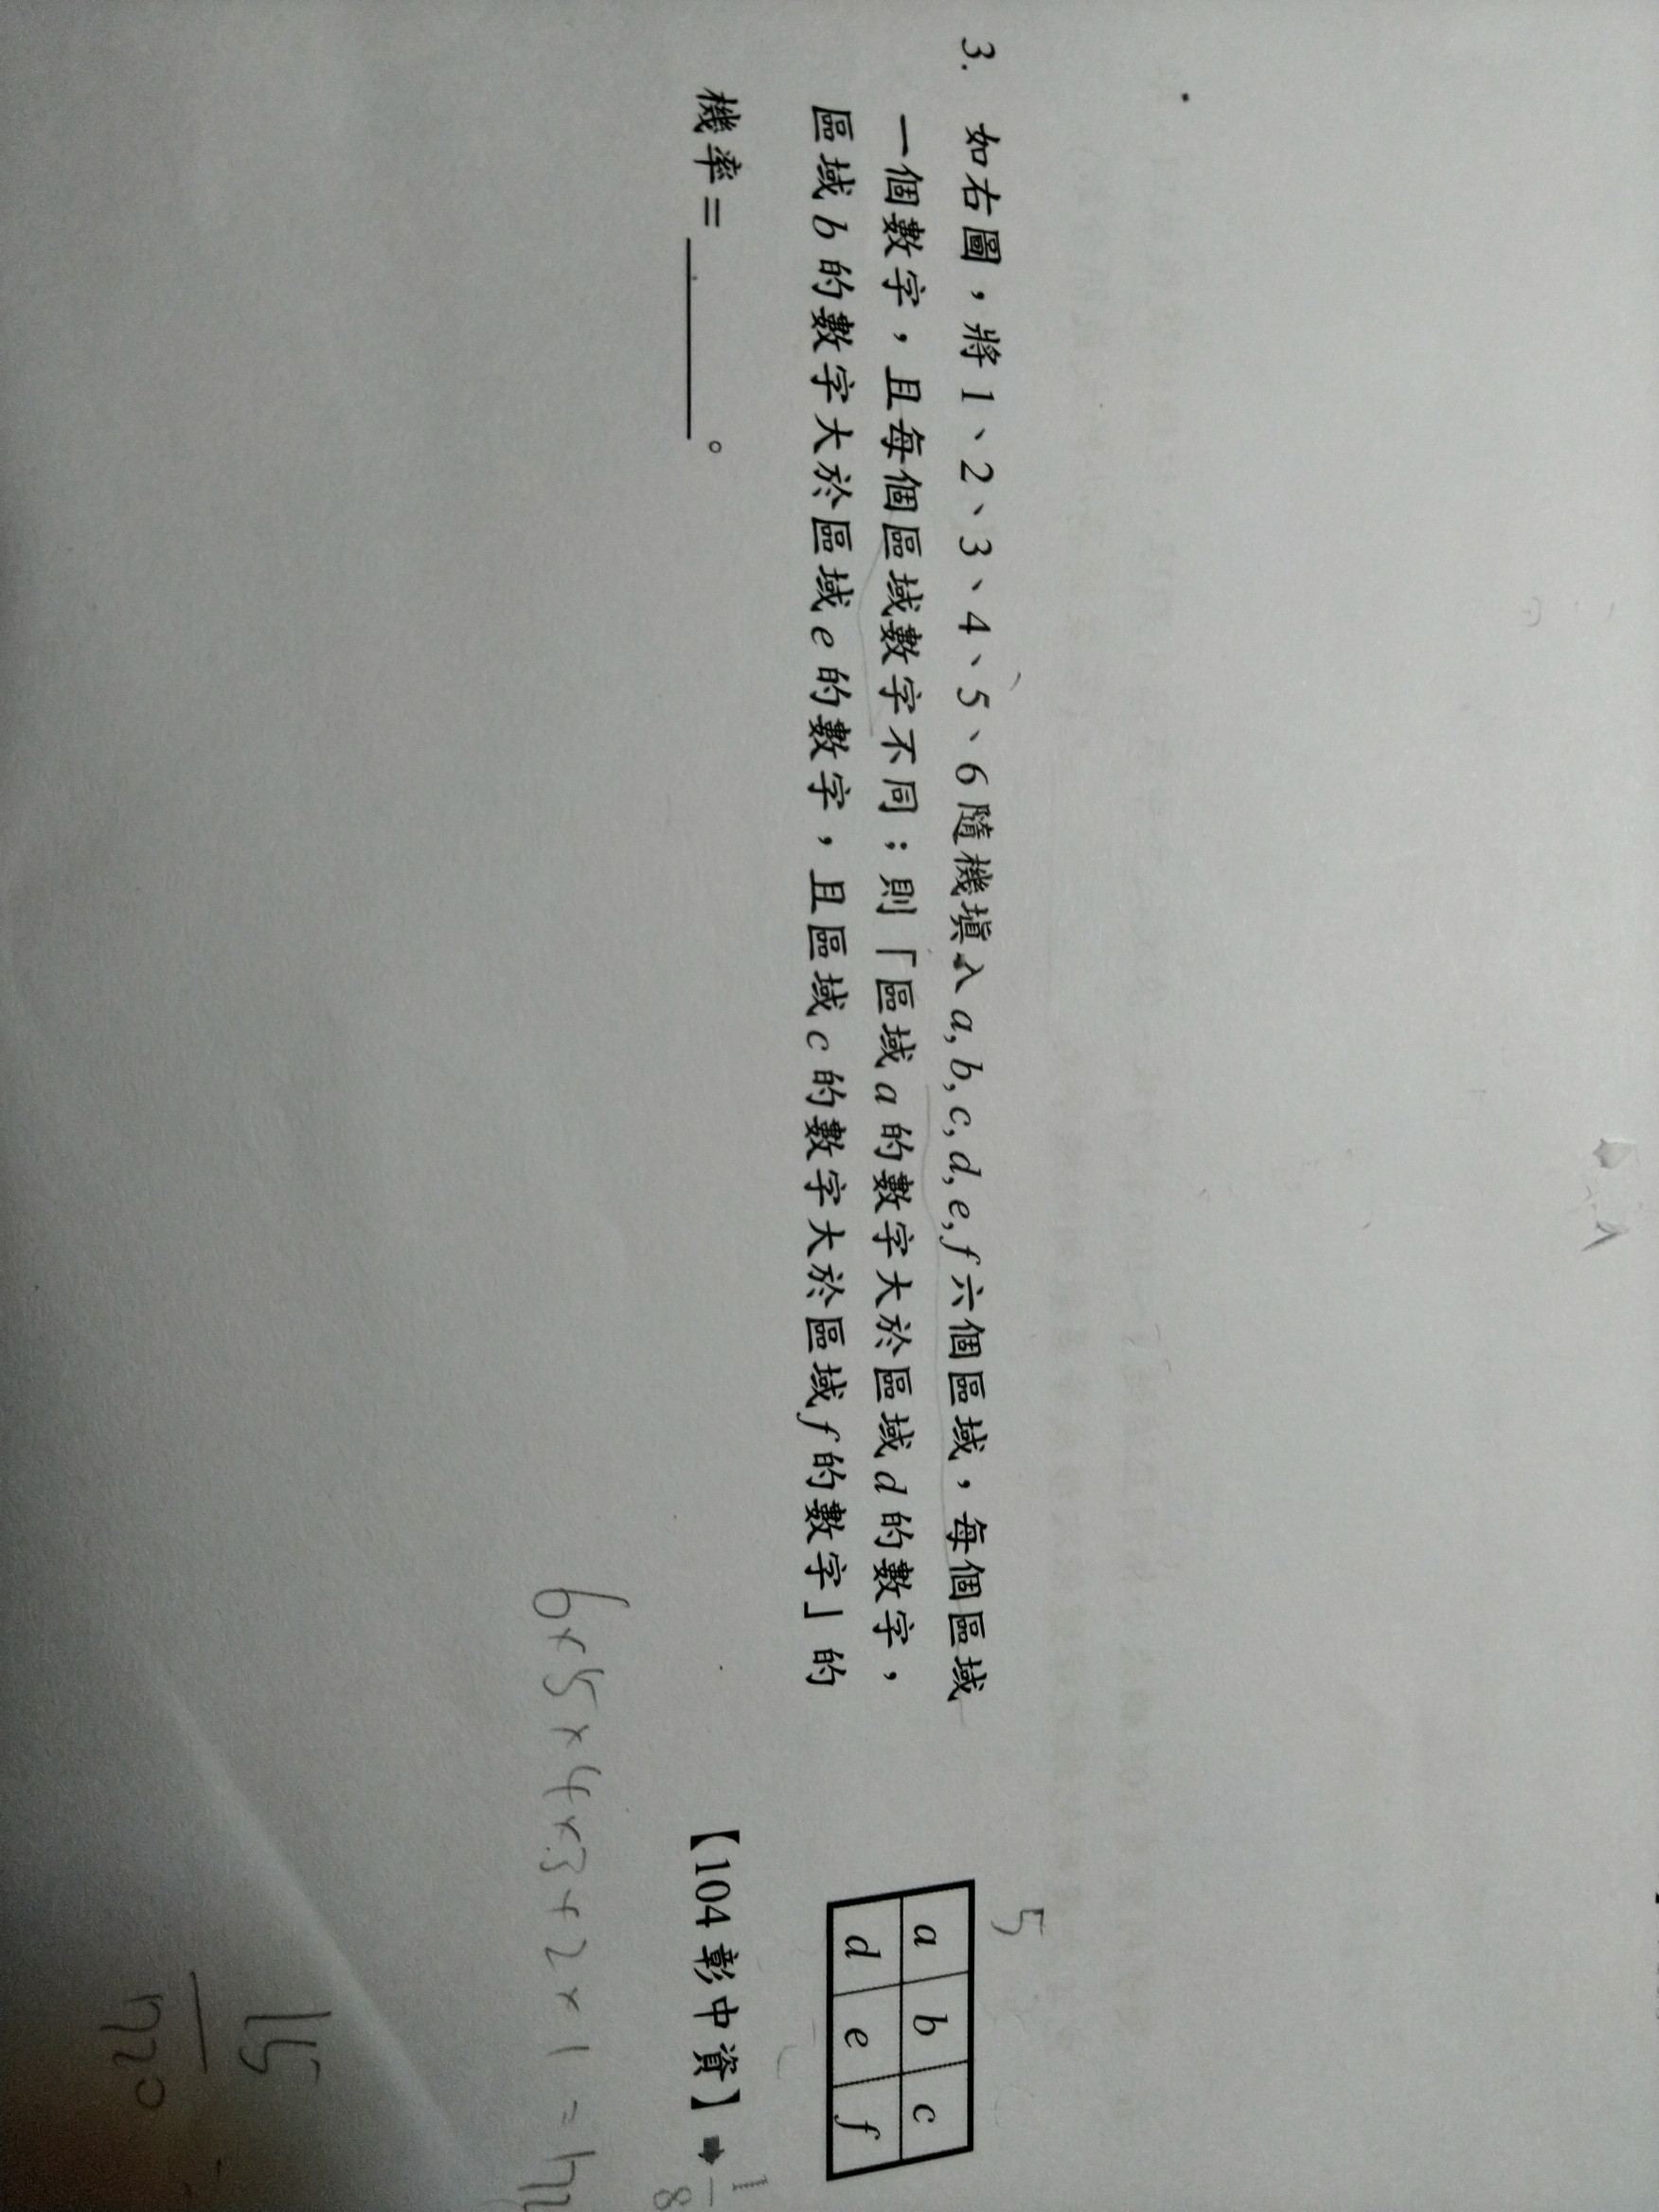 3. 如右圖，將1、2、3、4、5、6隨機填入a, b, c, d, e, f六個區域，每個區域
一個數字，且每個區域數字不同；則「區域a的數字大於區域d的數字，
區域b的數字大於區域e的數字，且區域c的數字大於區域f的數字」的
機率=______。
5
a b c
d e f
【104 彰中資】➡ 1/8
6×5×4×3×2×1=
15
720